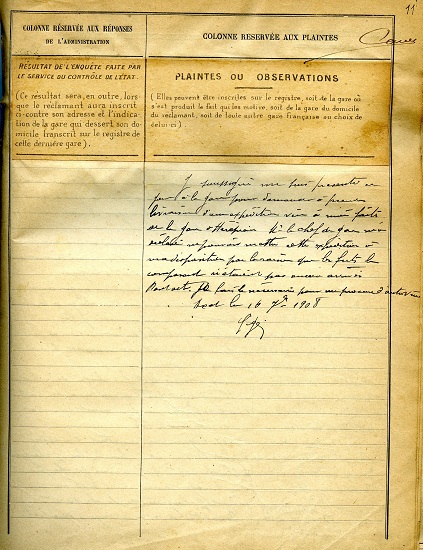 11
COLONNE RÉSERVÉE AUX RÉPONSES
DE L'ADMINISTRATION
COLONNE RÉSERVÉE AUX PLAINTES
RÉSULTAT DE L'ENQUÊTE FAITE PAR
LE SERVICE DU CONTRÔLE DE L'ÉTAT.
(Ce résultat sera, en outre, lors-
que le réclamant aura inscrit
ci-contre son adresse et l'indica-
tion de la gare qui dessert son do-
micile transcrit sur le registre de
cette dernière gare).
PLAINTES OU OBSERVATIONS
(Elles peuvent être inscrites sur le registre, soit de la gare où
s'est produit le fait qui les motive, soit de la gare du domicile
du réclamant, soit de toute autre gare française au choix de
celui-ci)
me suis présenté ce
jour à la gare pour demander à prendre
livraison d'une expédition
de la gare le chef de gare
mettre cette expédition à
ma disposition par la raison que les fûts la
composant n'étaient pas encore arrivés
le 16 1908